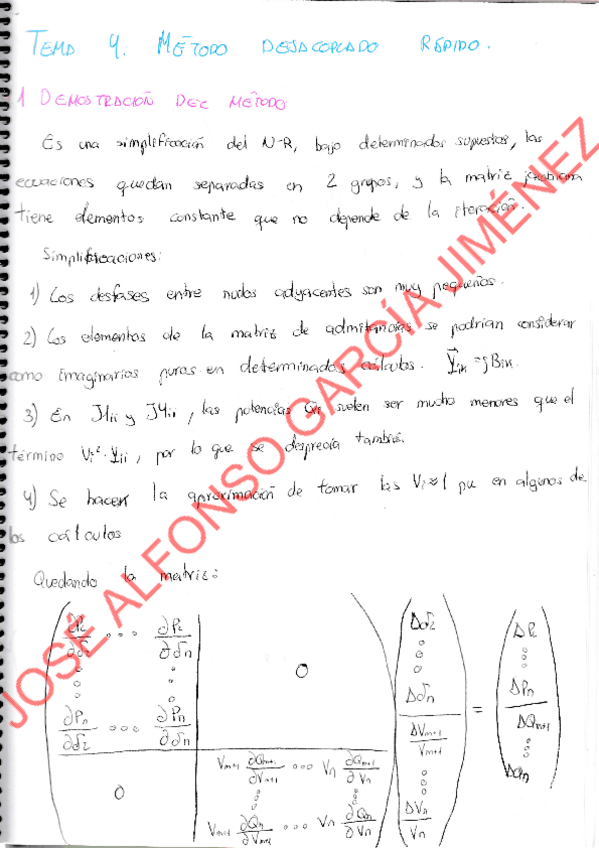 TEMA 4. MÉTODO DESACOPLADO RÁPIDO.
1 DEMOSTRACIÓN DEL MÉTODO
Es una simplificación del N-R, bajo determinados supuestos, las
ecuaciones quedan separadas en 2 grupos, y la matriz jacobiana
tiene elementos constante que no depende de la iteración.
Simplificaciones:
1) Los desfases entre nudos adyacentes son muy pequeños.
2) Los elementos de la matriz de admitancias se podrían considerar
como imaginarios puros en determinados cálculos. Yik = jBik.
3) En J1ii y J4ii, las potencias Qi suelen ser mucho menores que el
término Vi²·Yii, por lo que se desprecia también.
4) Se hacen la aproximación de tomar las Vi≈1 pu en algunos de
los cálculos
Quedando la matriz:
∂P2/∂δ2 ∘∘∘ ∂P2/∂δn 0 Δδ2 ΔP2
∂Pn/∂δ2 ∘∘∘ ∂Pn/∂δn Δδn = ΔPn
0 Vm+1 ∂Qm+1/∂Vm+1 ∘∘∘ Vn ∂Qm+1/∂Vn ΔVm+1/Vm+1 ΔQm+1
Vm+1 ∂Qn/∂Vm+1 ∘∘∘ Vn ∂Qn/∂Vn ΔVn/Vn ΔQn
JOSÉ ALFONSO GARCÍA JIMÉNEZ